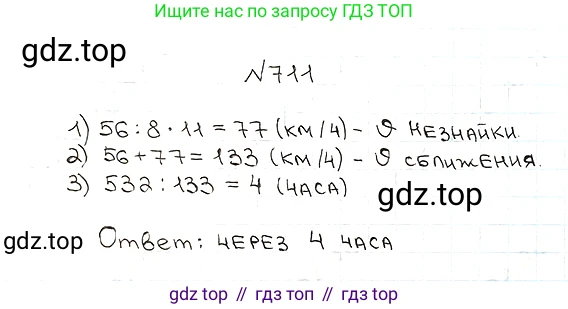 Ищите нас по запросу ГДЗ ТОП
gdz.top
№711
1) 56 : 8 · 11 = 77 (км/ч) - υ незнайки.
2) 56 + 77 = 133 (км/ч) - υ сближения.
3) 532 : 133 = 4 (часа)
gdz.top
gdz.top Ответ: через 4 часа
gdz top // гдз топ // gdz.top